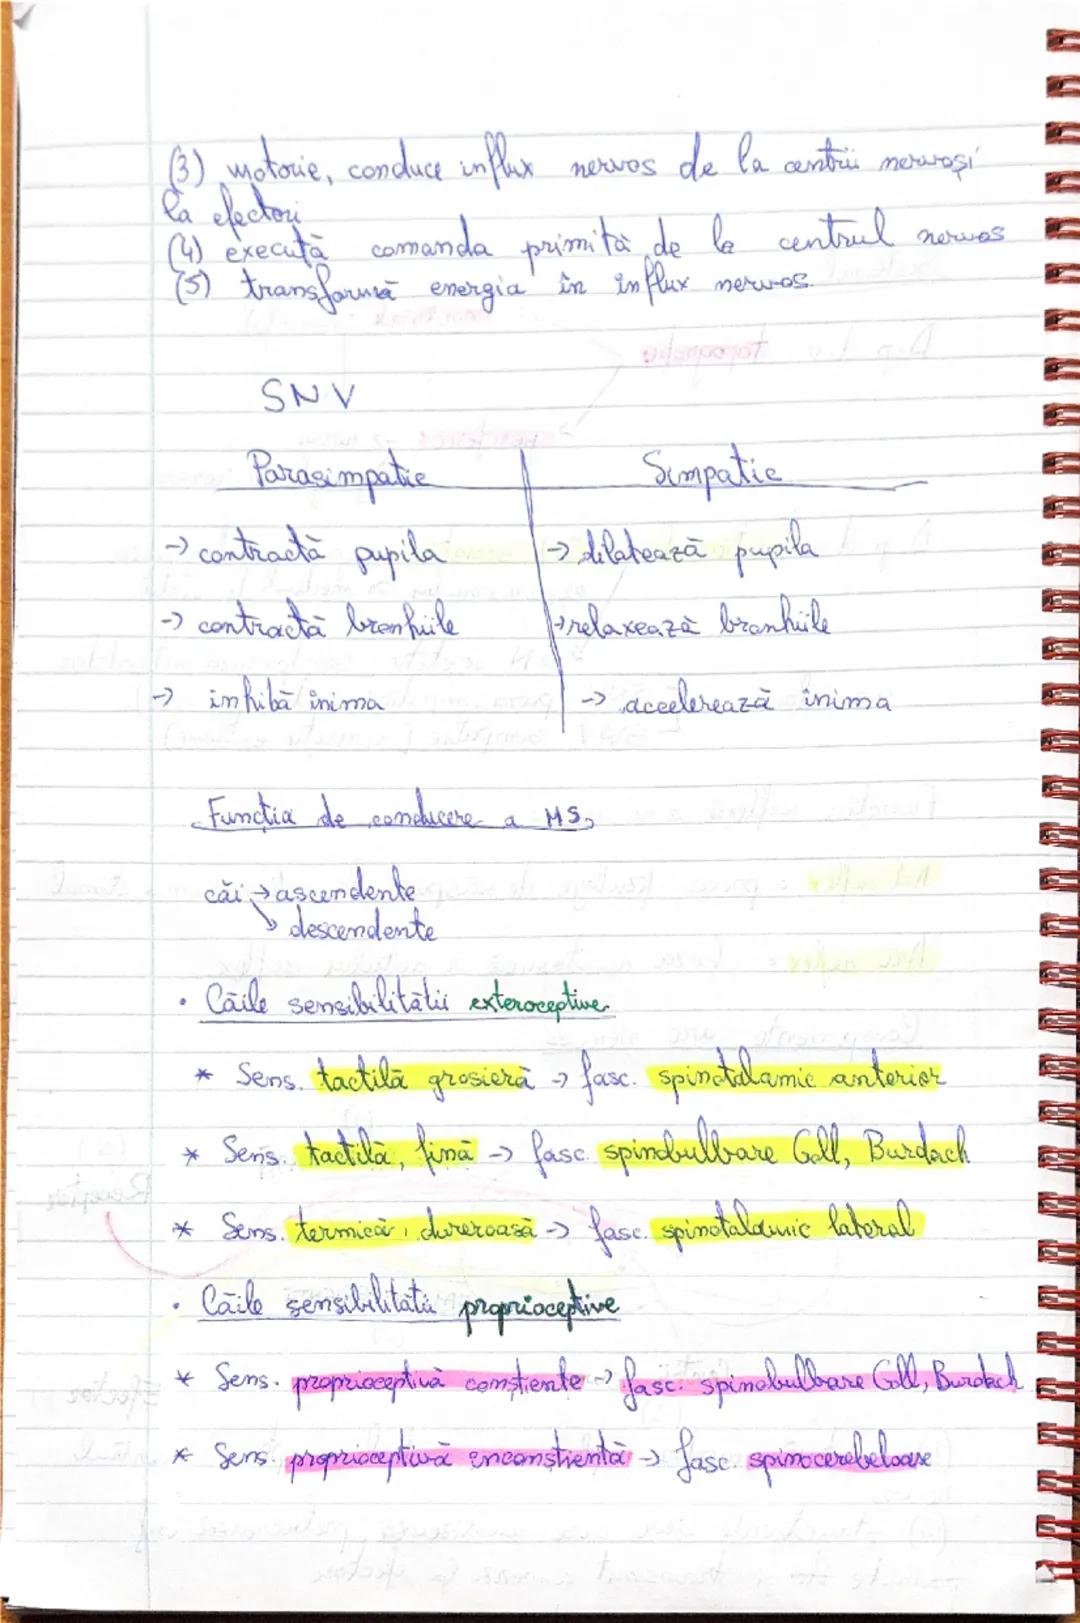 (3) motorie, conduce influx nervos de la centrii nervoși
la efectori
(4) execută comanda primită de la centrul nervos
(5) transformă energia în influx nervos.
SNV
Parasimpatic Simpatic
→ contractă pupila → dilatează pupila
→ contractă bronhiile → relaxează bronhiile
→ inhibă inima → accelerează inima
Funcția de conducere a MS
căi → ascendente
↘ descendente
• Căile sensibilității exteroceptive
* Sens. tactilă grosieră → fasc. spinotalamic anterior
* Sens. tactilă, fină → fasc. spinobulbare Goll, Burdach
* Sens. termică, dureroasă → fasc. spinotalamic lateral
• Căile sensibilității proprioceptive
* Sens. proprioceptivă conștiente → fasc. spinobulbare Goll, Burdach
* Sens. proprioceptivă inconștientă → fasc. spinocerebeloase